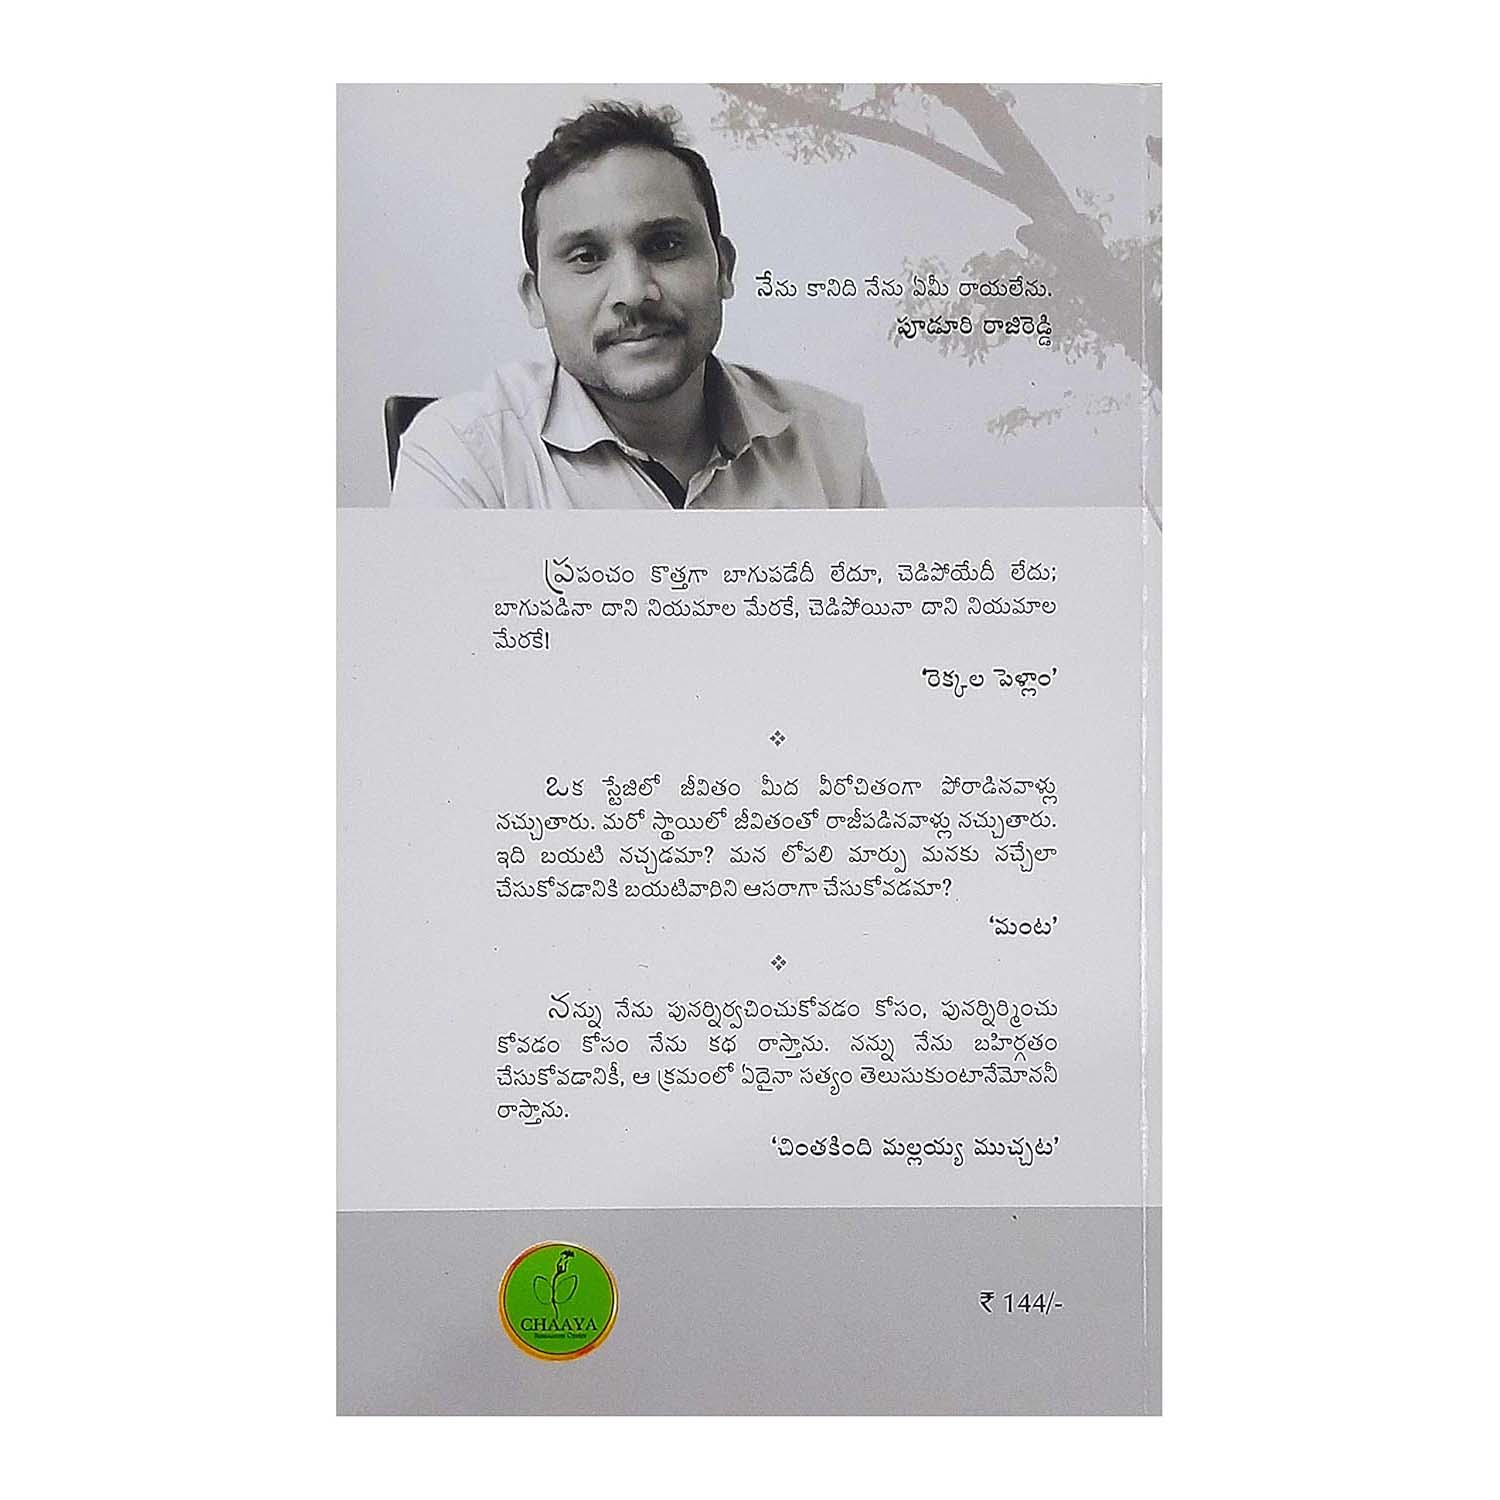 నేను కానిది నేను ఏమీ రాయలేను.
పూడూరి రాజిరెడ్డి
ప్రపంచం కొత్తగా బాగుపడేదీ లేదూ, చెడిపోయేదీ లేదు;
బాగుపడినా దాని నియమాల మేరకే, చెడిపోయినా దాని నియమాల
మేరకే!
'రెక్కల పెళ్లాం'
ఒక స్టేజిలో జీవితం మీద వీరోచితంగా పోరాడినవాళ్లు
నచ్చుతారు. మరో స్థాయిలో జీవితంతో రాజీపడినవాళ్లు నచ్చుతారు.
ఇది బయటి నచ్చడమా? మన లోపలి మార్పు మనకు నచ్చేలా
చేసుకోవడానికి బయటివారిని ఆసరాగా చేసుకోవడమా?
'మంట'
నన్ను నేను పునర్నిర్వచించుకోవడం కోసం, పునర్నిర్మించు
కోవడం కోసం నేను కథ రాస్తాను. నన్ను నేను బహిర్గతం
చేసుకోవడానికీ, ఆ క్రమంలో ఏదైనా సత్యం తెలుసుకుంటానేమోననీ
రాస్తాను.
'చింతకింది మల్లయ్య ముచ్చట'
CHAAYA
Resources Centre
₹ 144/-